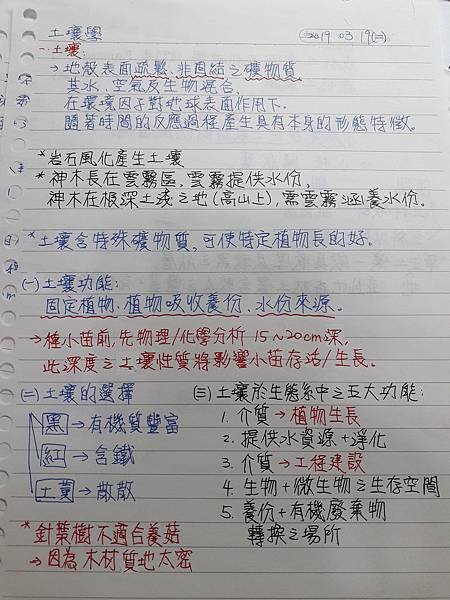 土壤學
2019 03 19(二).
一.土壤:
→地殼表面疏鬆.非固結之礦物質
其水、空氣及生物混合,
在環境因子對地球表面作用下.
隨著時間的反應過程產生具有本身的形態特徵。
*岩石風化產生土壤
*神木長在雲霧區,雲霧提供水份,
神木在根深土淺之地(高山上),需雲霧涵養水份。
*土壤含特殊礦物質,可使特定植物長的好。
(一)土壤功能:
固定植物、植物吸收養份、水份來源。
→種小苗前,先物理/化學分析 15~20cm深,
此深度之土壤性質將影響小苗存活/生長。
(二)土壤的選擇
黑→有機質豐富
紅→含鐵
土黃→散散
*針葉樹不適合養菇
→因為木材質地太密
(三)土壤於生態系中之五大功能:
1. 介質→植物生長
2. 提供水資源+淨化
3. 介質→工程建設
4. 生物+微生物之生存空間
5. 養份+有機廢棄物
轉換之場所